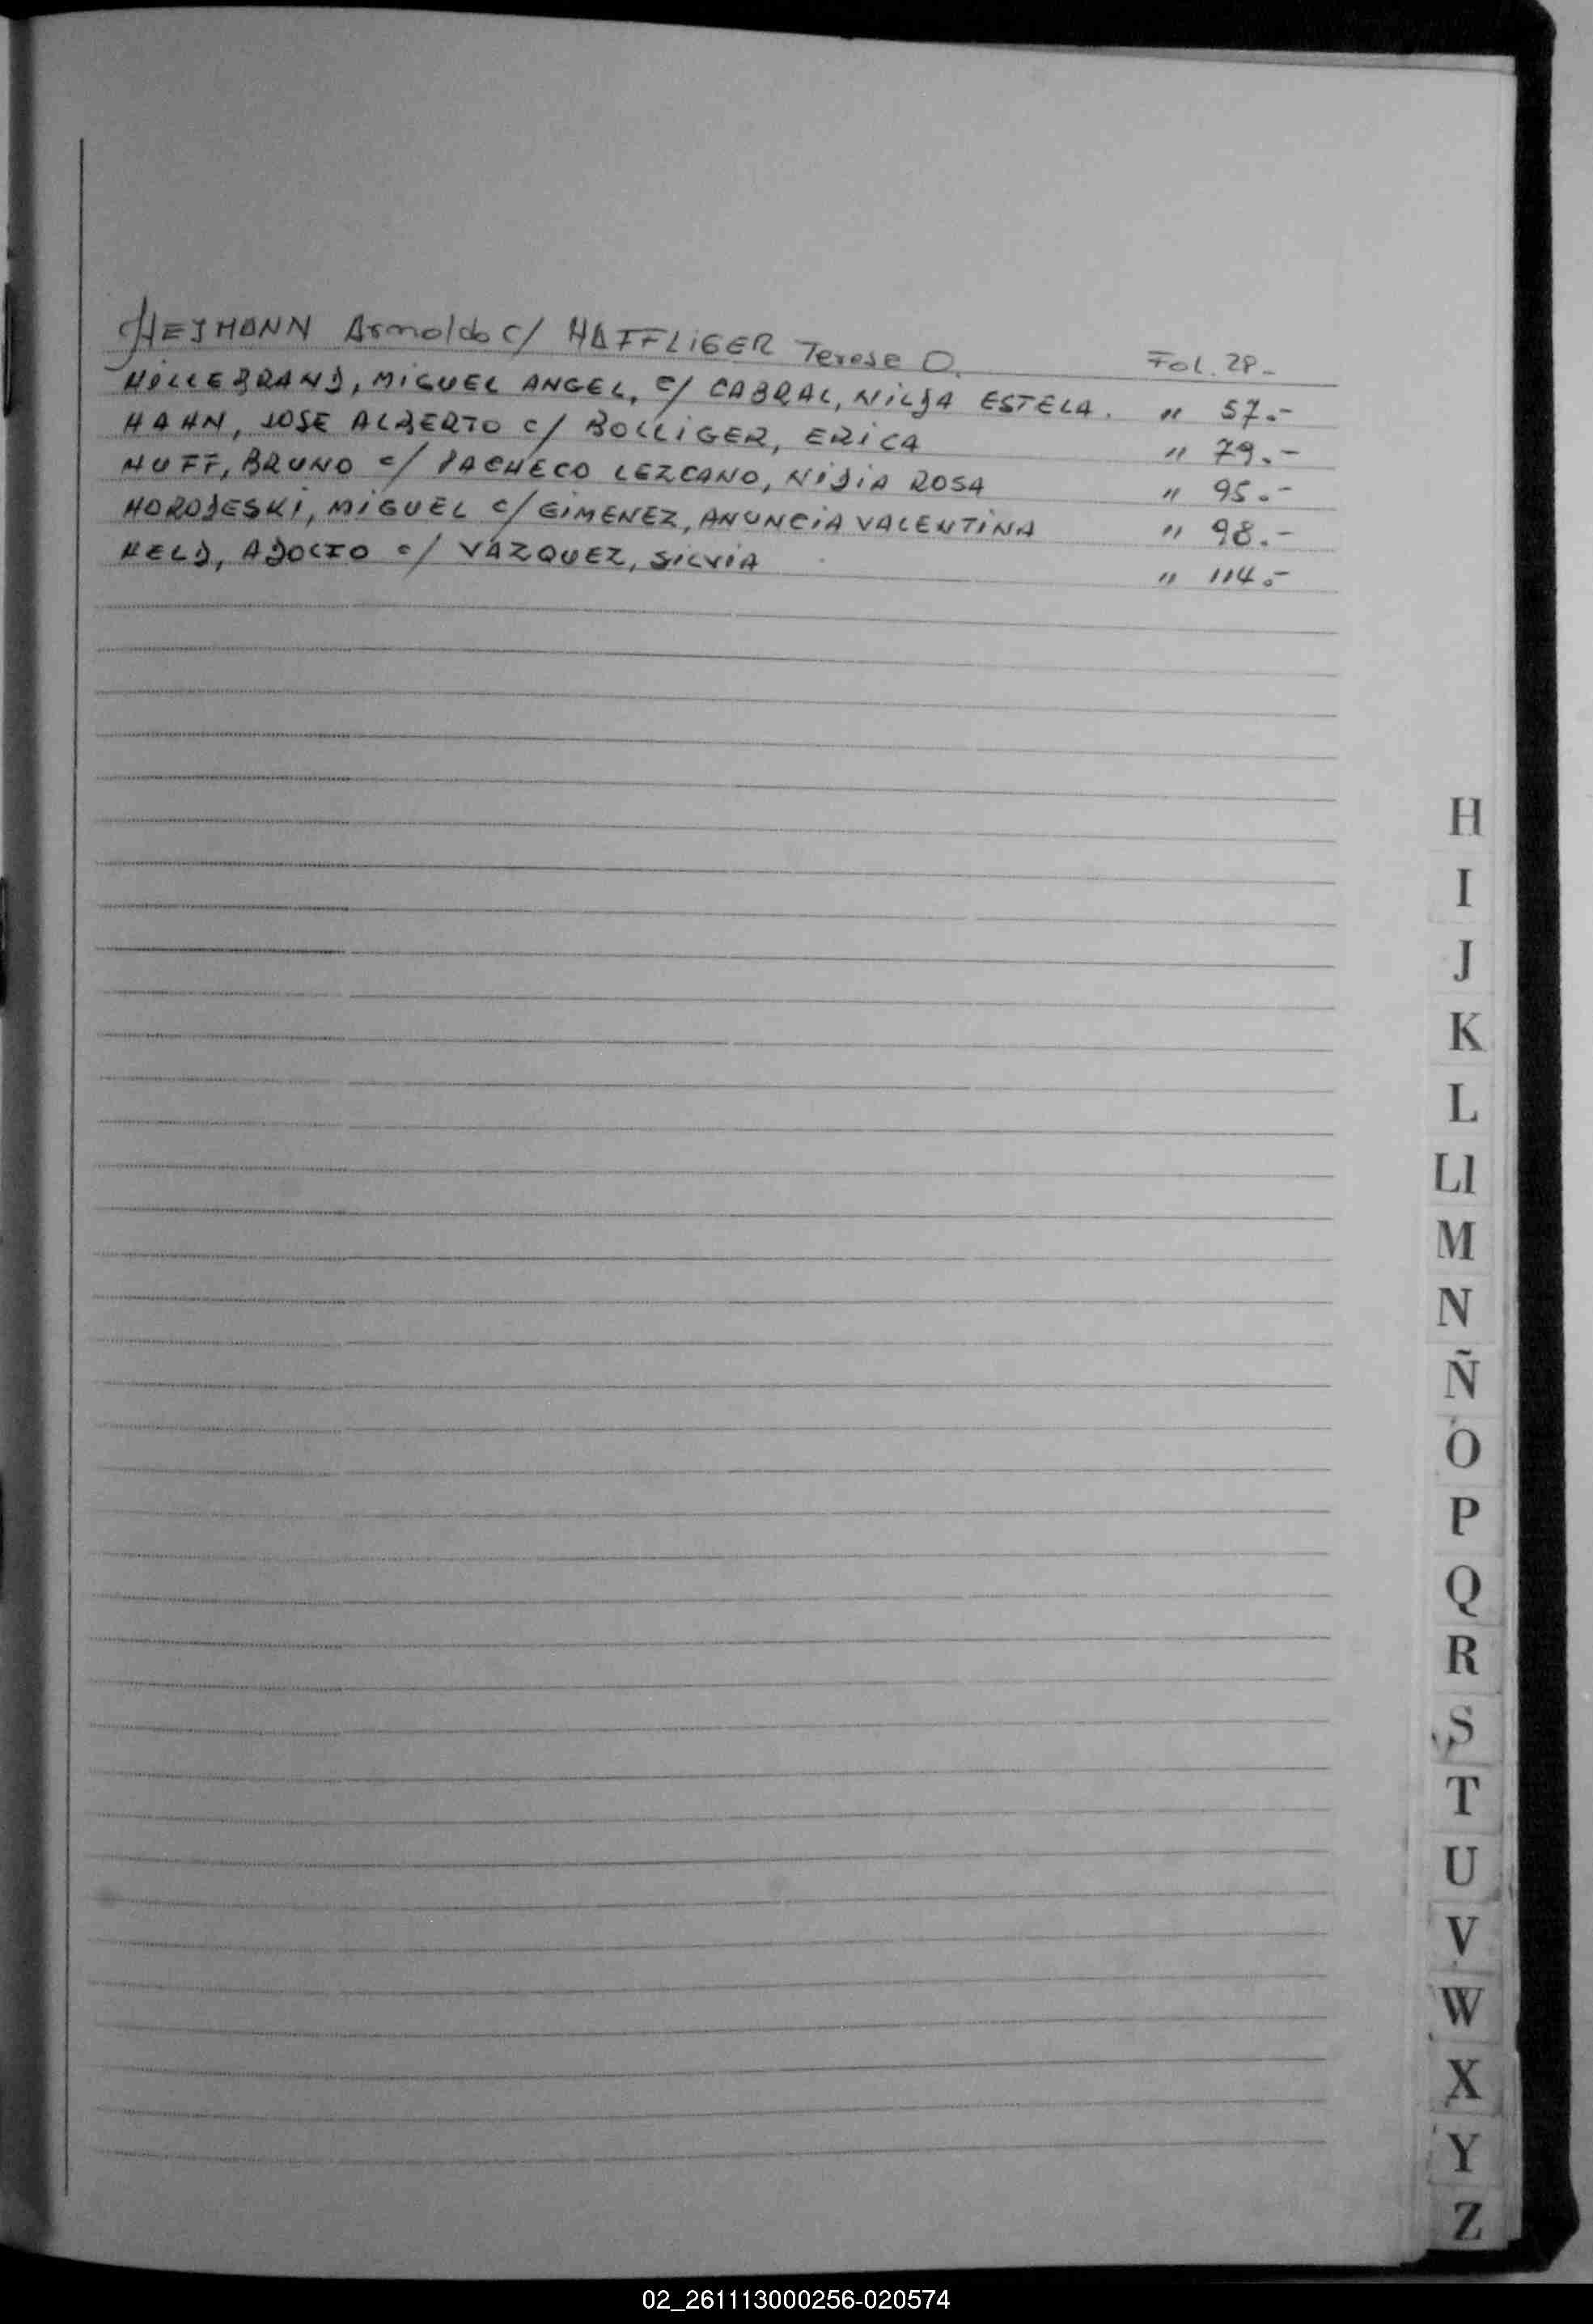 HEJMANN Arnoldo c/ HAFFLIGER Terese D. Fol. 28.-
HILLEBRAND, MIGUEL ANGEL, c/ CABRAL, NILDA ESTELA. " 57.-
HAHN, JOSE ALBERTO c/ BOLLIGER, ERICA " 79.-
HUFF, BRUNO c/ PACHECO LEZCANO, NIDIA ROSA " 95.-
HORODESKI, MIGUEL c/ GIMENEZ, ANUNCIA VALENTINA " 98.-
HELD, ADOLFO c/ VAZQUEZ, SILVIA " 114.-
H
I
J
K
L
Ll
M
N
Ñ
O
P
Q
R
S
T
U
V
W
X
Y
Z
02_261113000256-020574